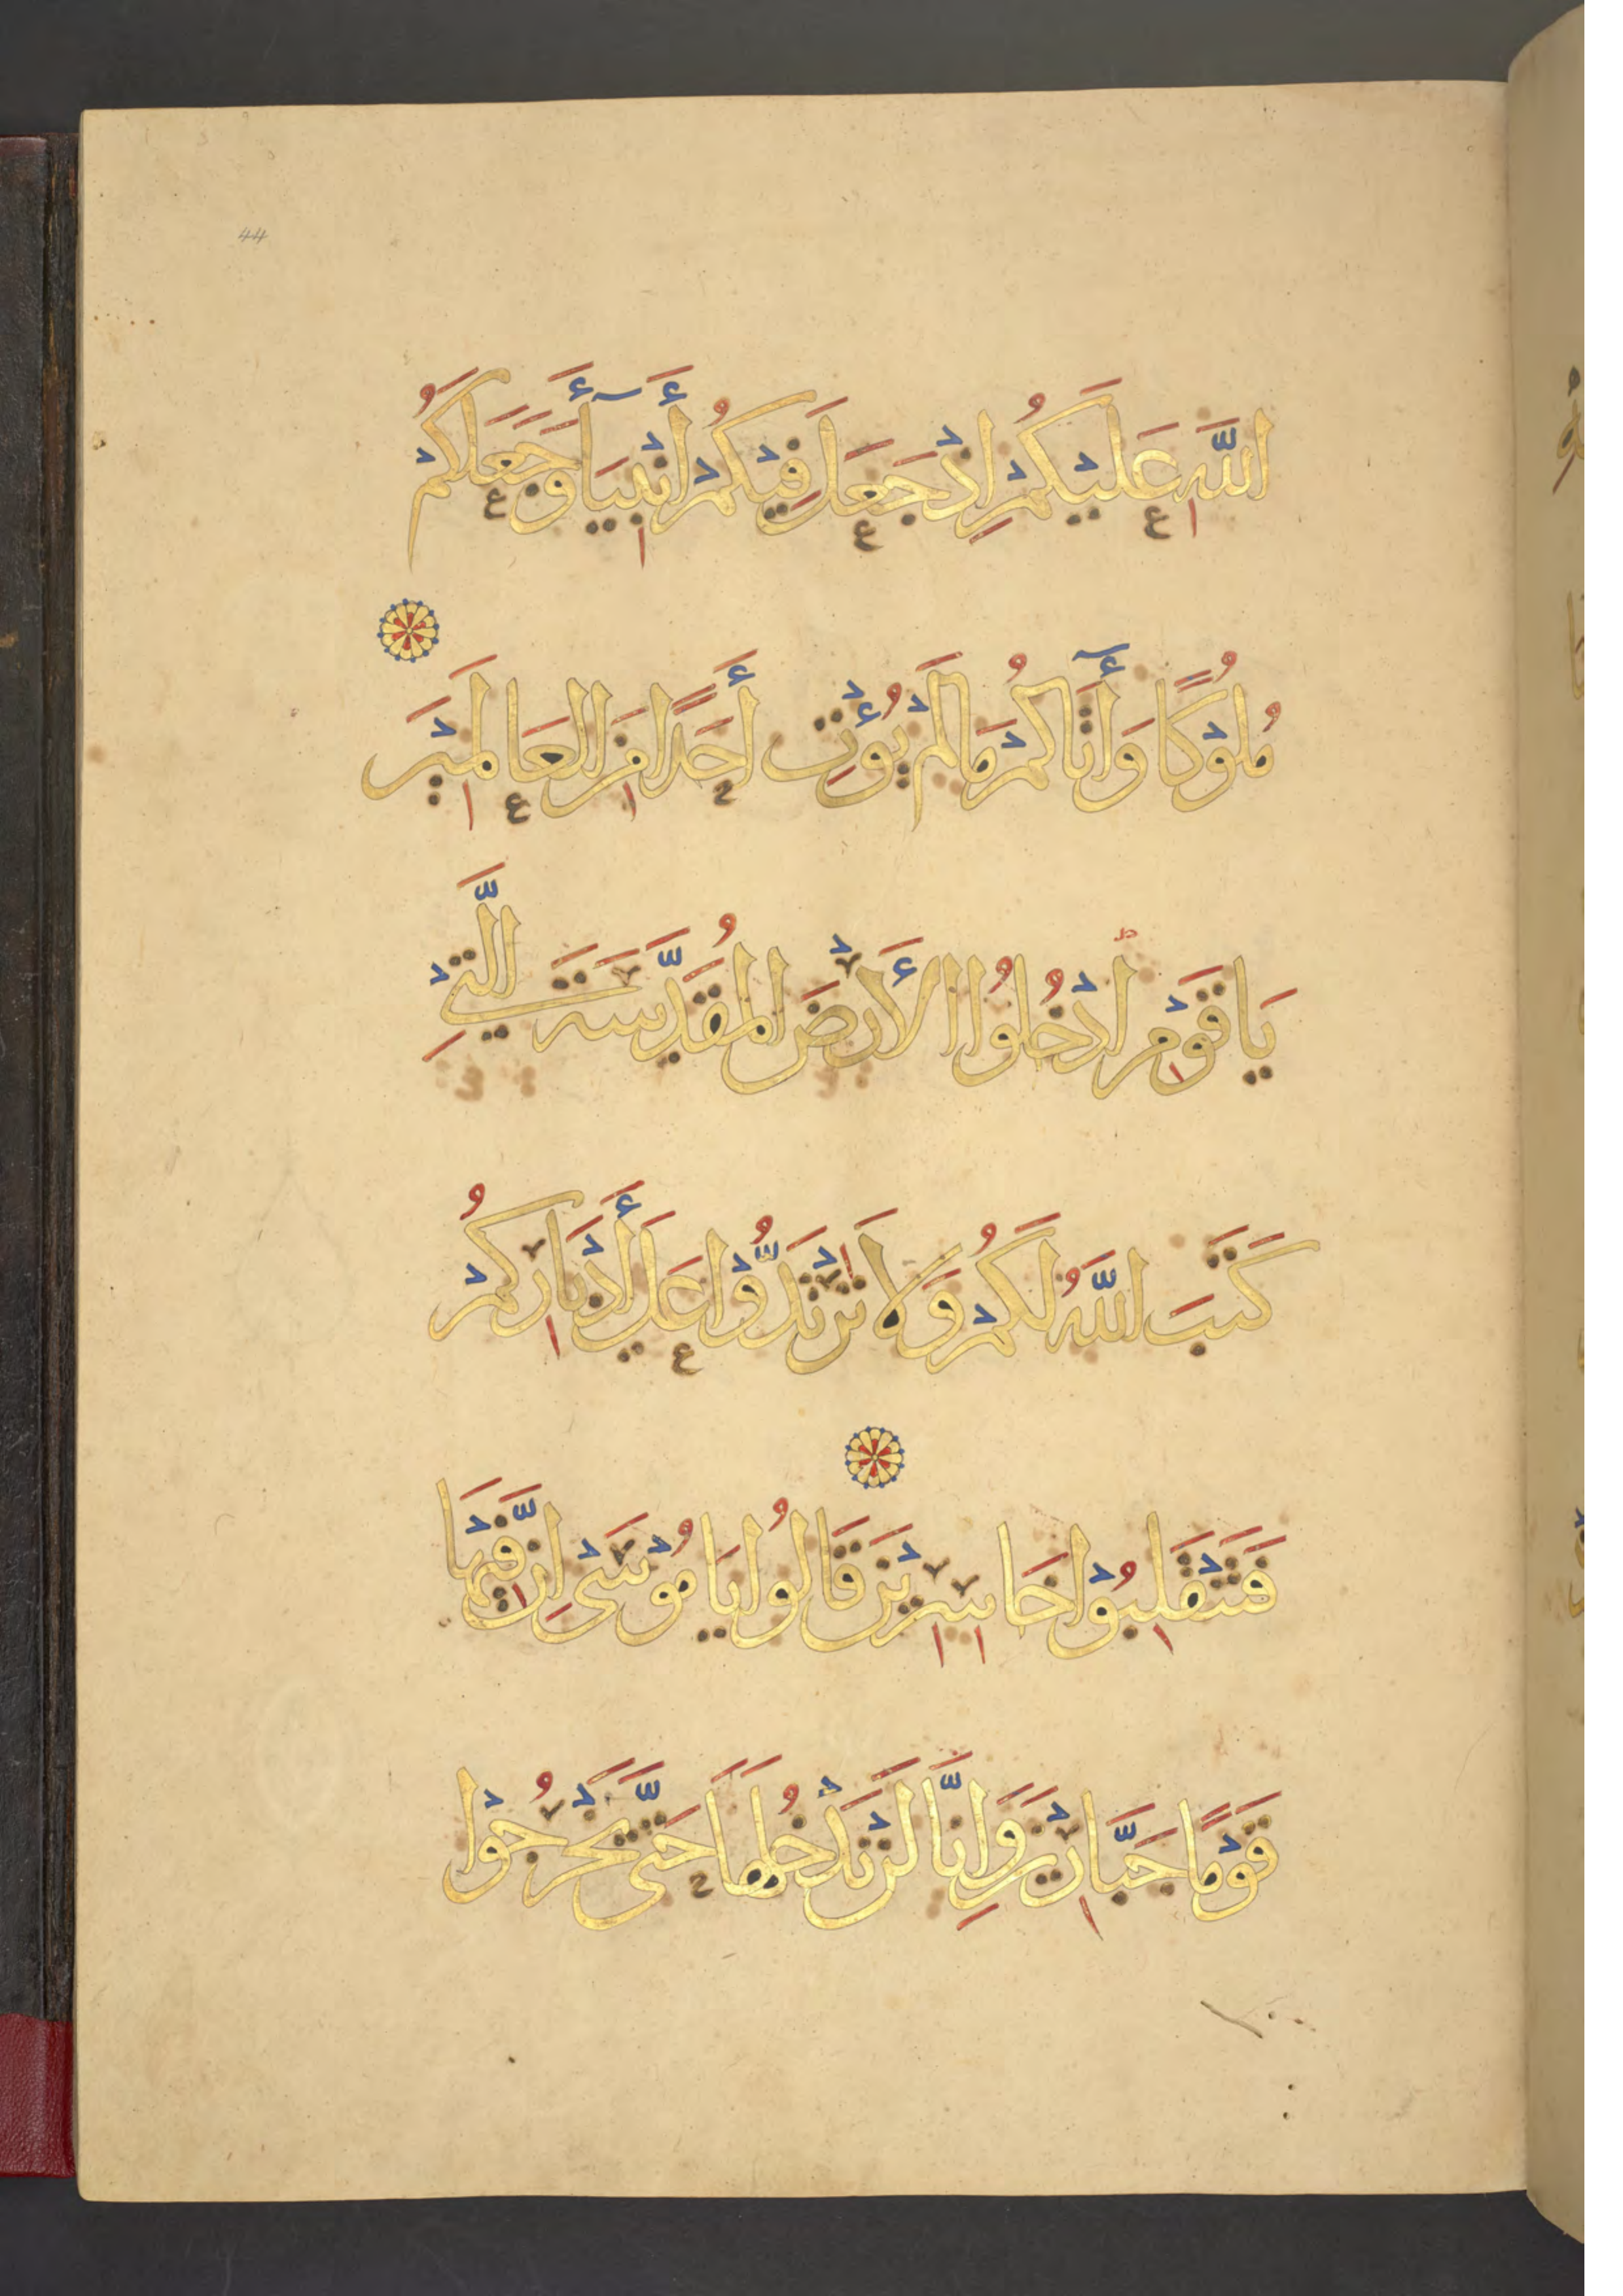 44
اللَّهِ عَلَيْكُمْ إِذْ جَعَلَ فِيكُمْ أَنْبِيَآءَ وَجَعَلَكُمْ
مُلُوْكًا وَأٓتَاكُمْ مَالَمْ يُؤْتِ أَحَدًا مِنَ الْعَالَمِيْنَ
يَا قَوْمِ ادْخُلُوْا الْأَرْضَ الْمُقَدَّسَةَ الَّتِيْ
كَتَبَ اللَّهُ لَكُمْ وَلَا تَرْتَدُّوْا عَلَى أَدْبَارِكُمْ
فَتَنْقَلِبُوْا خَاسِرِيْنَ قَالُوا يَا مُوْسَى إِنَّ فِيْهَا
قَوْمًا جَبَّارِيْنَ وَإِنَّا لَنْ نَدْخُلَهَا حَتَّى يَخْرُجُوْا